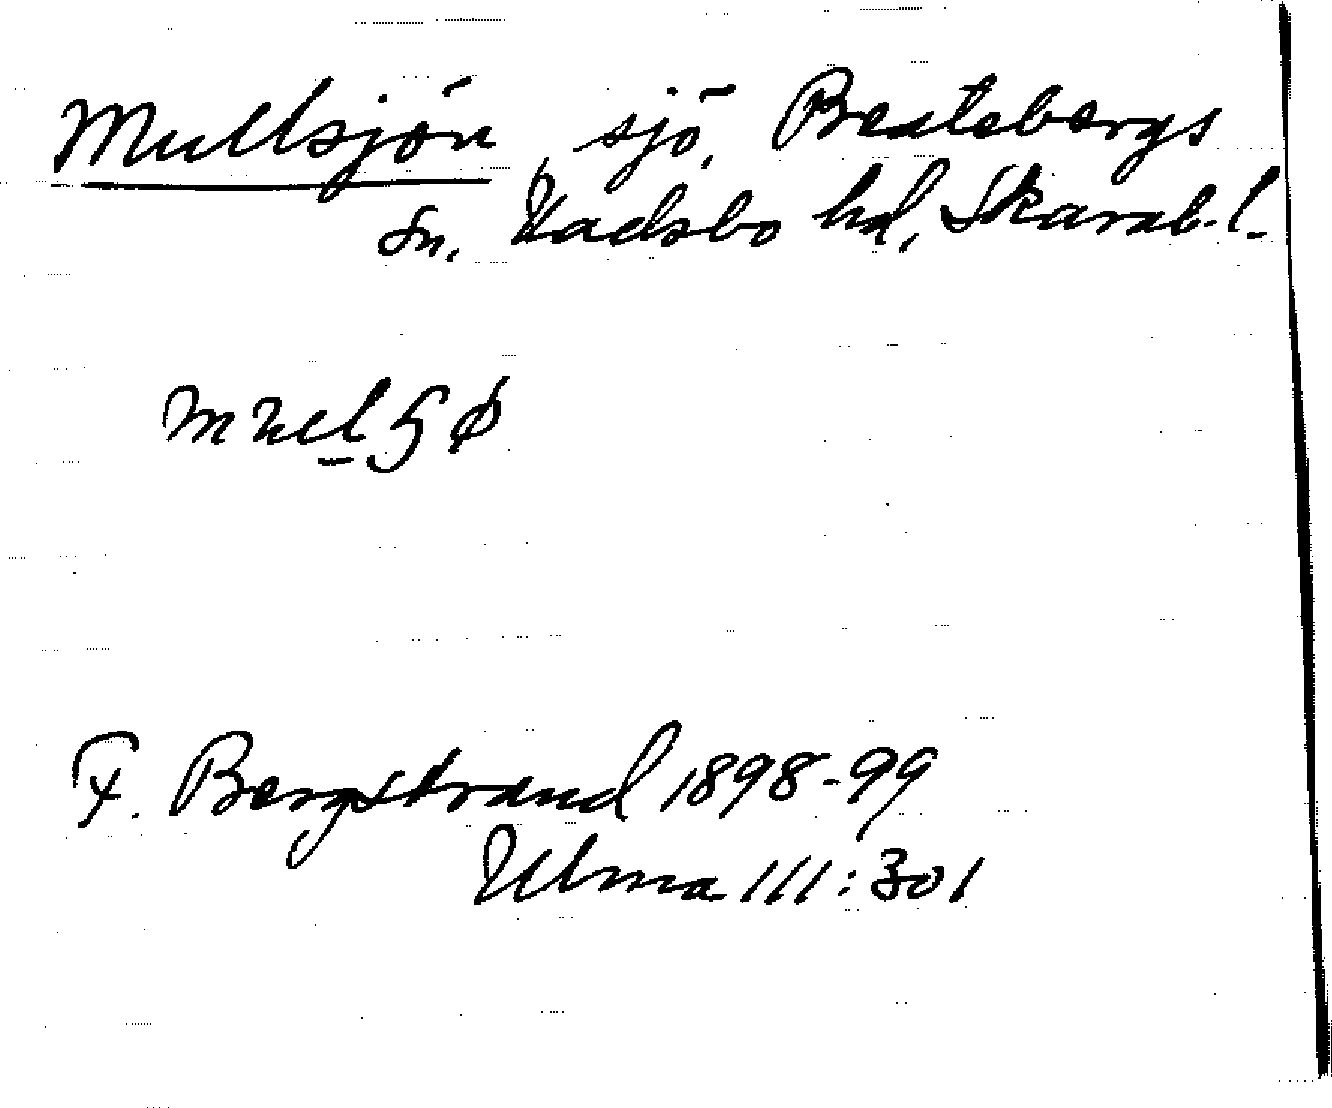 Mullsjön, sjö, Beatebergs
sn, Vadsbo hd, Skarab. l.
F. Bergstrand 1898-99
Ulma 111:301